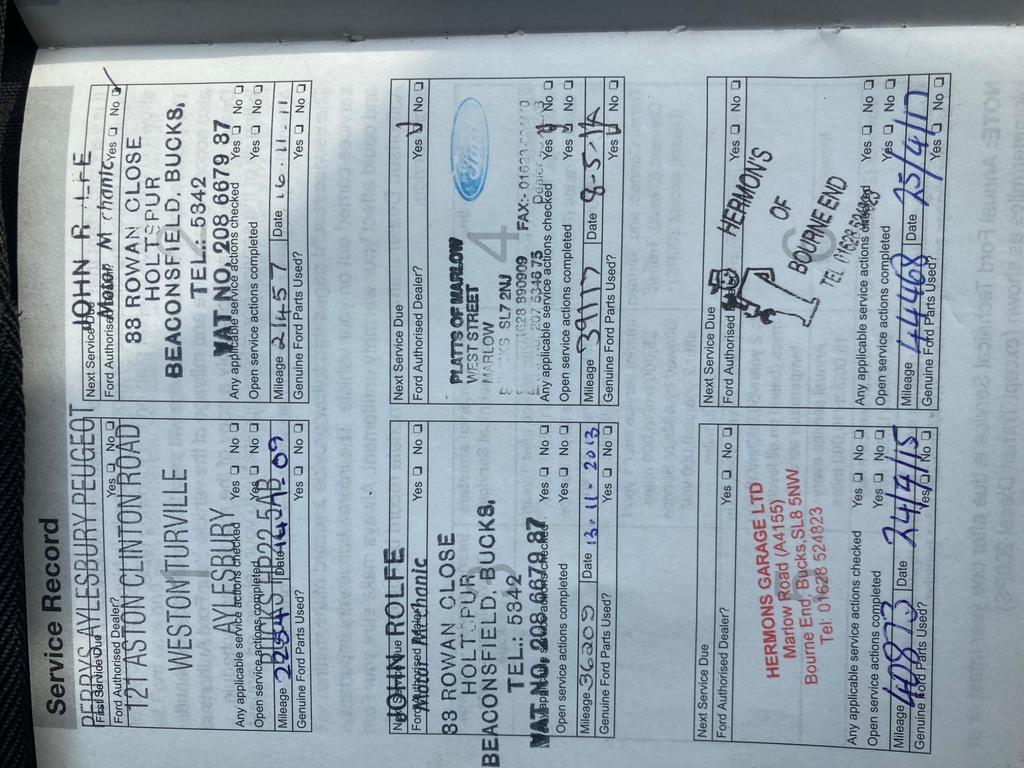 Service Record
PERRYS AYLESBURY PEUGEOT
First Service Due
Ford Authorised Dealer? Yes No
121 ASTON CLINTON ROAD
WESTON TURVILLE
AYLESBURY
Any applicable service actions checked Yes No
Open service actions completed Yes No
Mileage Date 09
Genuine Ford Parts Used? Yes No
Next Service Due
JOHN R LFE
Ford Authorised Yes No
Motor M chanic
88 ROWAN CLOSE
HOLTSPUR
BEACONSFIELD, BUCKS,
TEL.: 5342
VAT NO. 208 6679 87
Any applicable service actions checked Yes No
Open service actions completed Yes No
Mileage 21457 Date 16.11.11
Genuine Ford Parts Used? Yes No
JOHN ROLFE
Motor Mechanic
Yes No
88 ROWAN CLOSE
HOLTSPUR
BEACONSFIELD, BUCKS,
TEL.: 5342
VAT NO. 208 6679 87
Yes No
Open service actions completed Yes No
Mileage 36209 Date 13.11.2013
Genuine Ford Parts Used? Yes No
Next Service Due
Ford Authorised Dealer? Yes No
Ford
PLATTS OF MARLOW
WEST STREET
MARLOW
4
SL7 2NJ
890909 FAX:- 01628
Any applicable service actions checked Yes No
Open service actions completed Yes No
Mileage 39117 Date 8-5-14
Genuine Ford Parts Used? Yes No
Next Service Due
Ford Authorised Dealer? Yes No
HERMONS GARAGE LTD
Marlow Road (A4155)
Bourne End, Bucks, SL8 5NW
Tel: 01628 524823
Any applicable service actions checked Yes No
Open service actions completed Yes No
Mileage 40873 Date 24/4/15
Genuine Ford Parts Used? Yes No
Next Service Due
Ford Authorised Yes No
HERMON'S
OF
BOURNE END
TEL 01628
Any applicable service actions checked Yes No
Open service actions completed Yes No
Mileage 44468 Date 25/4/17
Genuine Ford Parts Used? Yes No